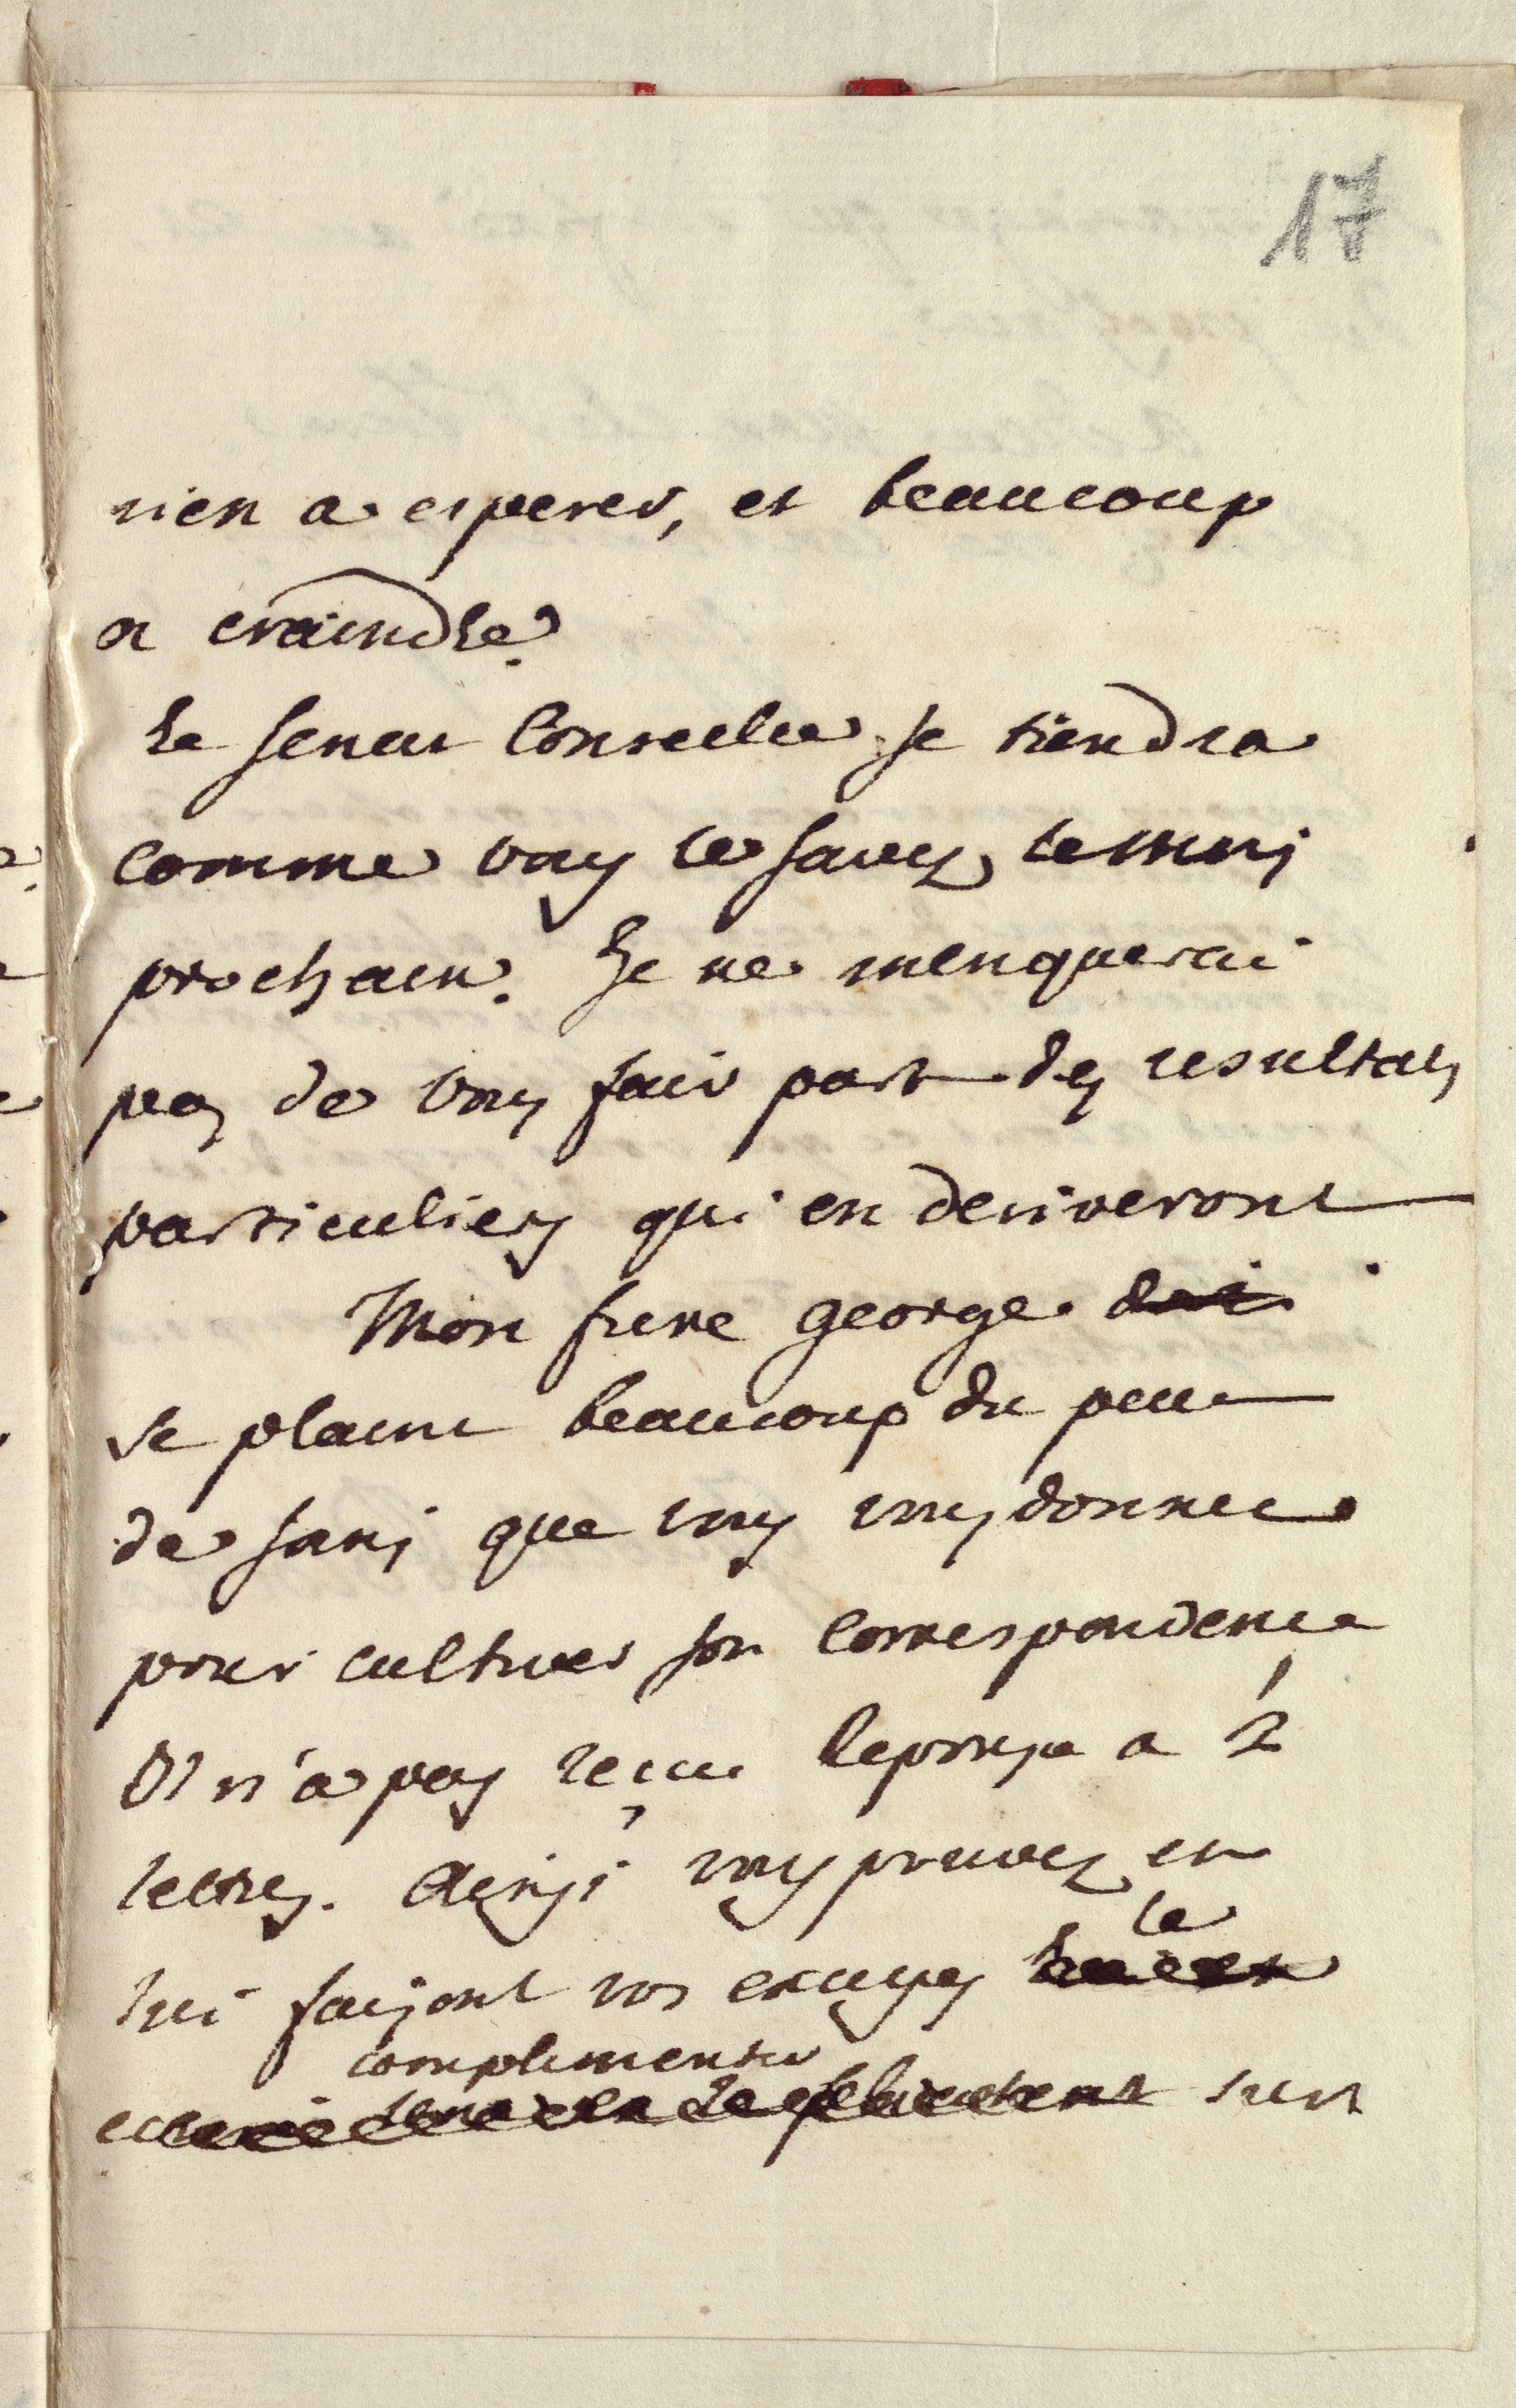 17
rien a esperer, et beaucoup
a craindre.
Le Senat Conseclu se tiendra
comme vous le savez le mois
prochain. Je ne menquerai
pas de vous fair part des resultats
particuliers qui en deriveront
Mon frere george doit
se plaint beaucoup du peu
de soins que vous vous donnee
pour cultiver son correspondence
Il n'a pas reçu reponse a 2
lettres. Ainsi vous pouvez en
lui faisant vos excuses le
complimenter
sur